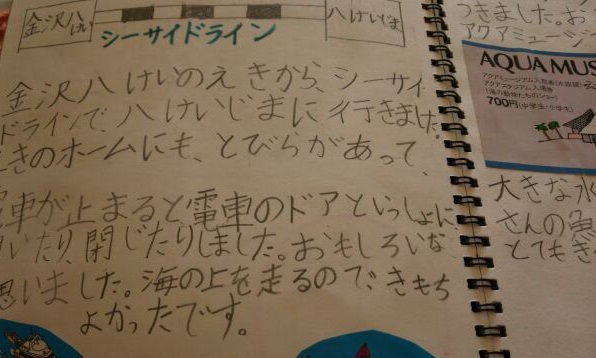 金沢八けい
八けいじま
シーサイドライン
金沢八けいのえきから、シーサイ
ドラインで、八けいじまに行きました。
えきのホームにも、とびらがあって、
電車が止まると電車のドアといっしょに
開いたり閉じたりしました。おもしろいな
思いました。海の上を走るので、きもち
よかったです。
つきました。お
アクアミュージ
AQUA MUS
アクアミュージアム入館券(水族館)
アクアスタジアム入場券
(海の動物たちのショー)
700円(中学生・小学生)
大きな水
さんの魚
とてもき